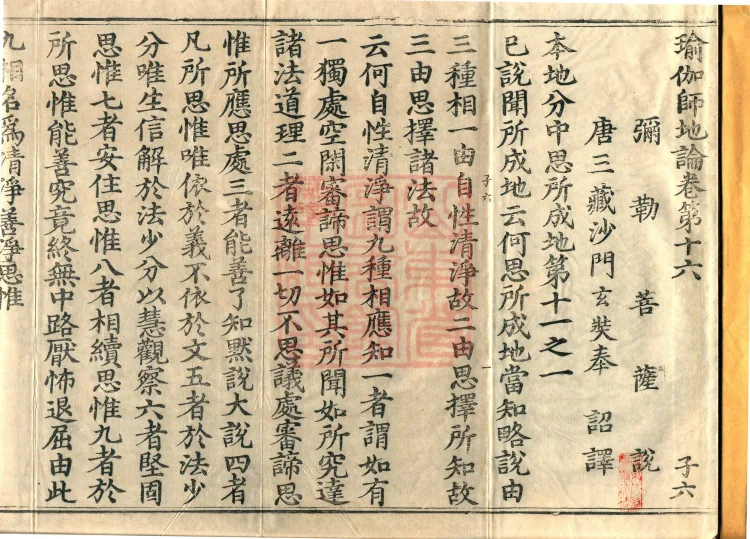 瑜伽師地論卷第十六 子六
彌勒菩薩說
唐三藏沙門玄奘奉 詔譯
本地分中思所成地第十一之一
已說聞所成地云何思所成地當知略說由
三種相一由自性清淨故二由思擇所知故
三由思擇諸法故
云何自性清淨謂九種相應知一者謂如有
一獨處空閑審諦思惟如其所聞如所究達
諸法道理二者遠離一切不思議處審諦思
惟所應思處三者能善了知默說大說四者
凡所思惟唯依於義不依於文五者於法少
分唯生信解於法少分以慧觀察六者堅固
思惟七者安住思惟八者相續思惟九者於
所思惟能善究竟終無中路厭怖退屈由此
九相名為清淨善淨思惟
子六